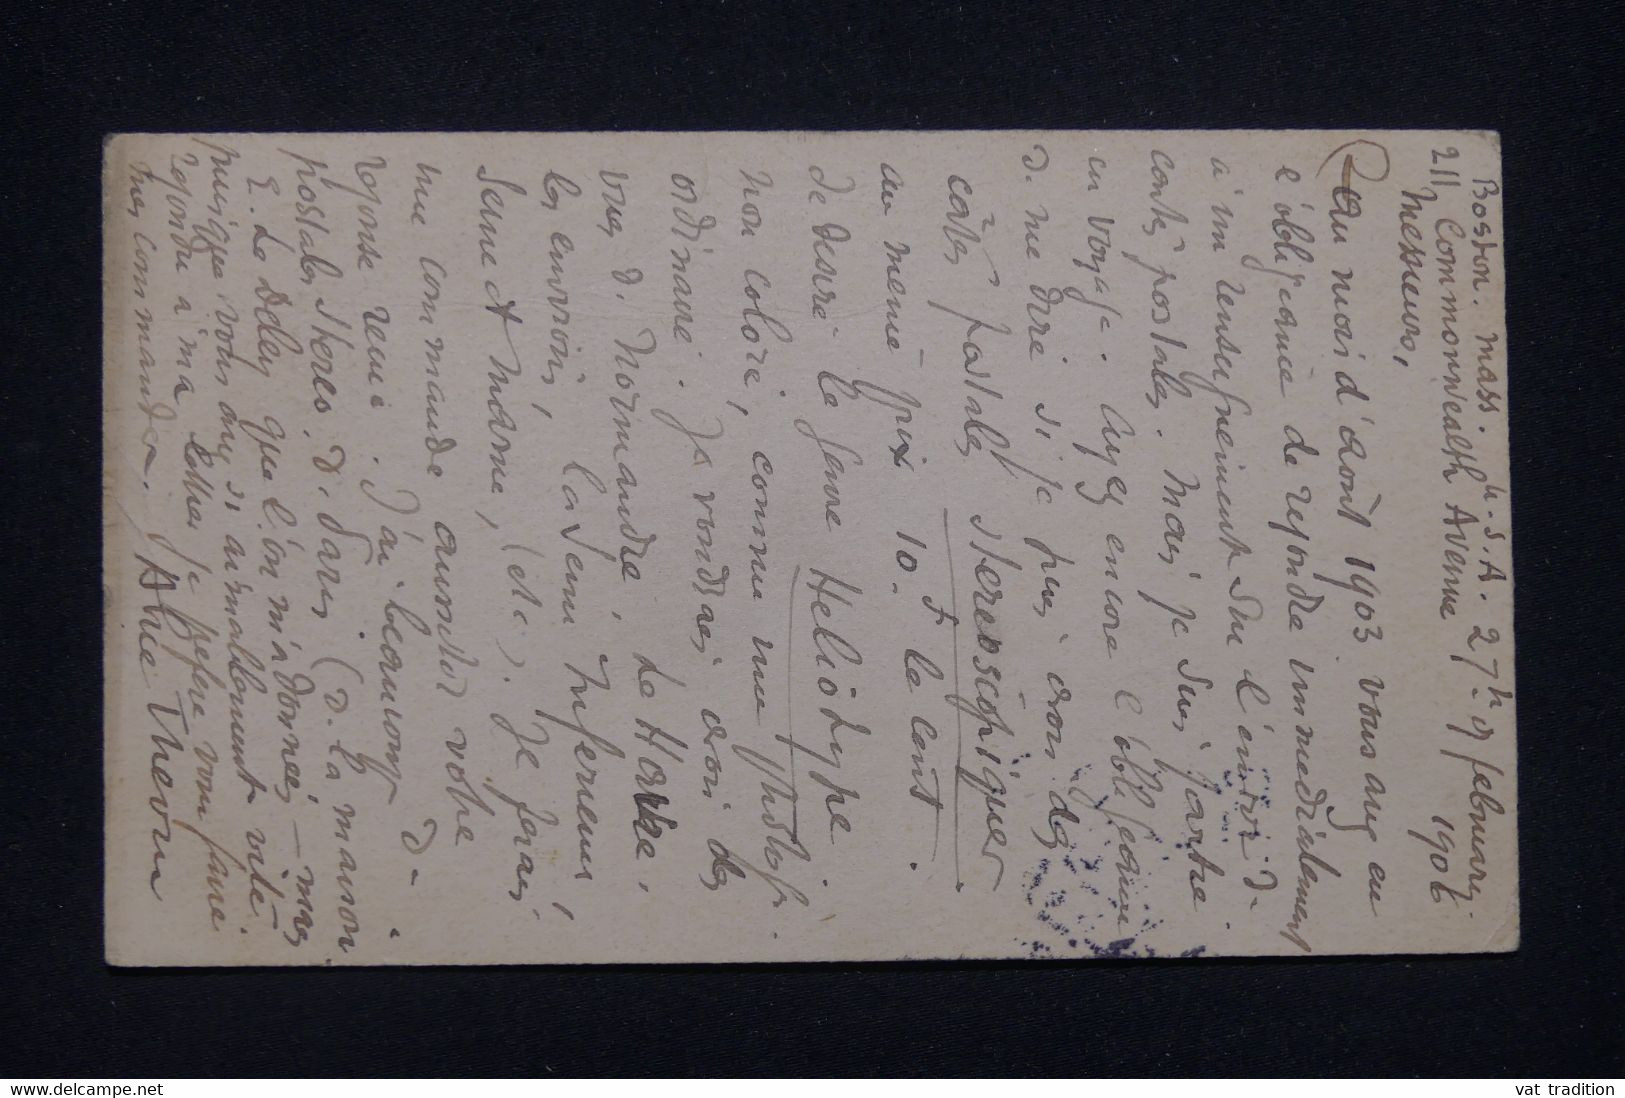 Boston. Mass. U.S.A. 27th of february.
211 Commonwealth Avenue 1906
Messieurs,
Au mois d'août 1903 vous avez eu
l'obligeance de repondre immediatement
à un renseignement sur l'envoi de
cartes postales. Mais je suis partie
en voyage. Ayez encore l'obligeance
de me dire si je puis avoir des
cartes postales stereoscopiques
au même prix 10. f le cent.
Je desire le genre Heliotype.
non colorié, comme une photogr.
ordinaire. Je voudrais avoir des
vues de Normandie, Le Havre,
les environs, la Seine Inferieure,
Seine et Marne, (etc). Je ferai
une commande aussitôt votre
reponse reçue. J'ai beaucoup de
postales stereos. de Paris (de la maison
E. Le Deley que l'on m'a données — mais
puisque vous avez si aimablement vite
repondu à ma lettre je prefere vous faire
mes commandes. Alice Thevin
vat tradition
www.delcampe.net